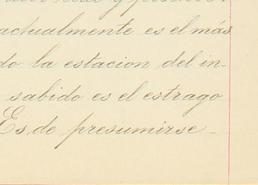 y
actualmente es el más
do la estacion del in-
sabido es el estrago
Es de presumirse